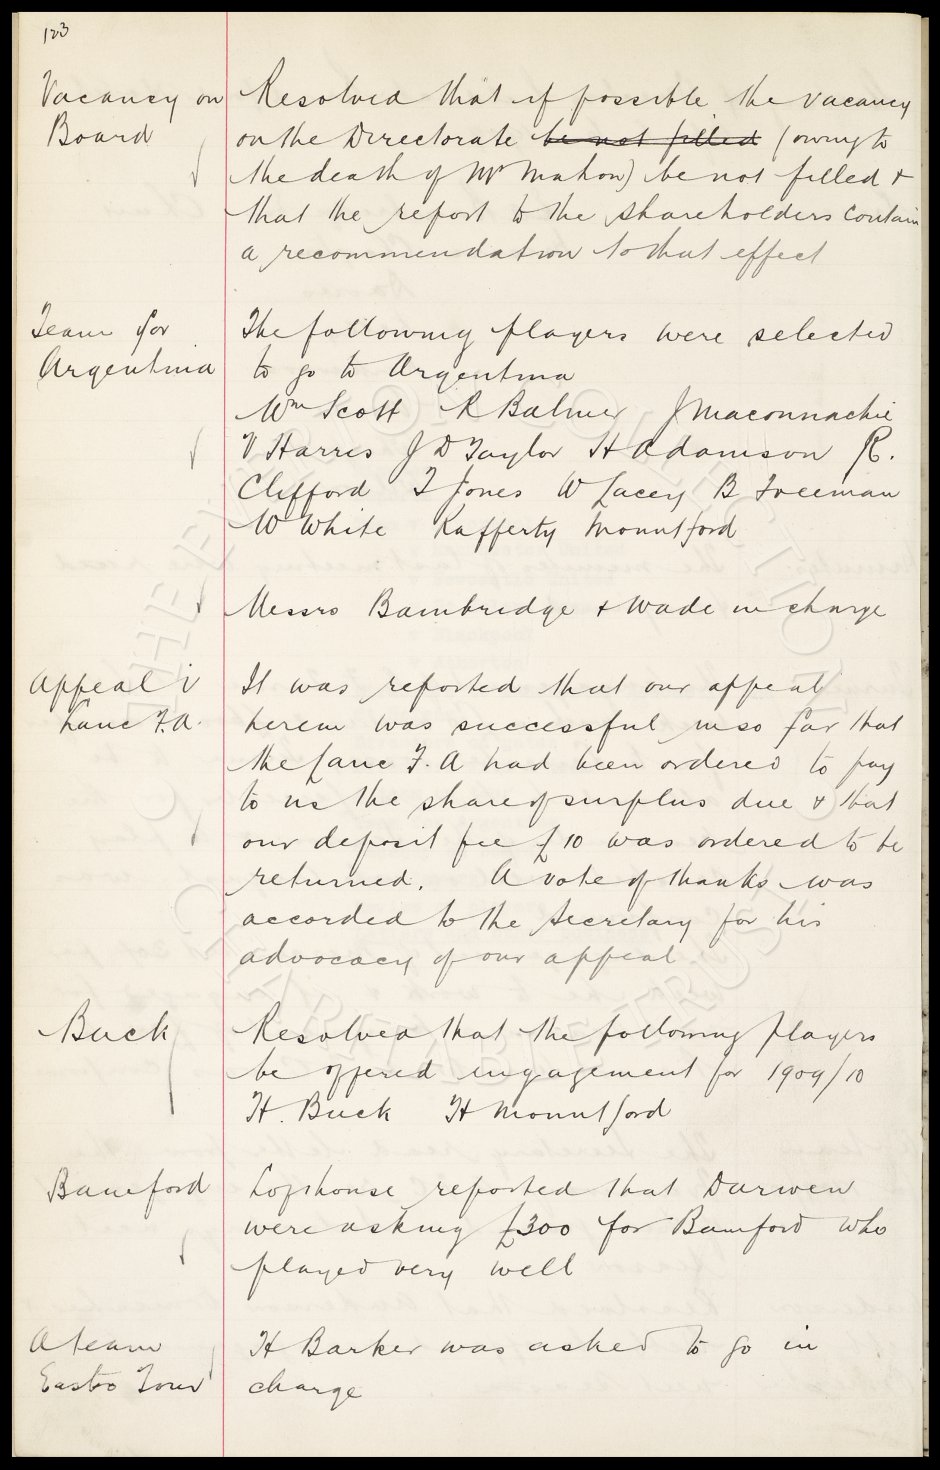 123
Vacancy on
Board
Resolved that if possible the vacancy
on the Directorate be not filled (owing to
the death of Mr Mahon) be not filled +
that the report to the shareholders contain
a recommendation to that effect
Team for
Argentina
The following players were selected
to go to Argentina
Wm Scott R Balmer J Maconnachie
V Harris J D Taylor H Adamson R.
Clifford T Jones W Lacey B Freeman
W White Rafferty Mountford
Messrs Bambridge + Wade in charge
Appeal v
Lanc F.A.
It was reported that our appeal
herein was successful in so far that
the Lanc F. A had been ordered to pay
to us the share of surplus due & that
our deposit fee £10 was ordered to be
returned. A vote of thanks was
accorded to the Secretary for his
advocacy of our appeal
Buck
Resolved that the following players
be offered engagement for 1909/10
H. Buck H Mountford
Bamford
Lofthouse reported that Darwen
were asking £300 for Bamford who
played very well
A team
Easter Tour
H Barker was asked to go in
charge